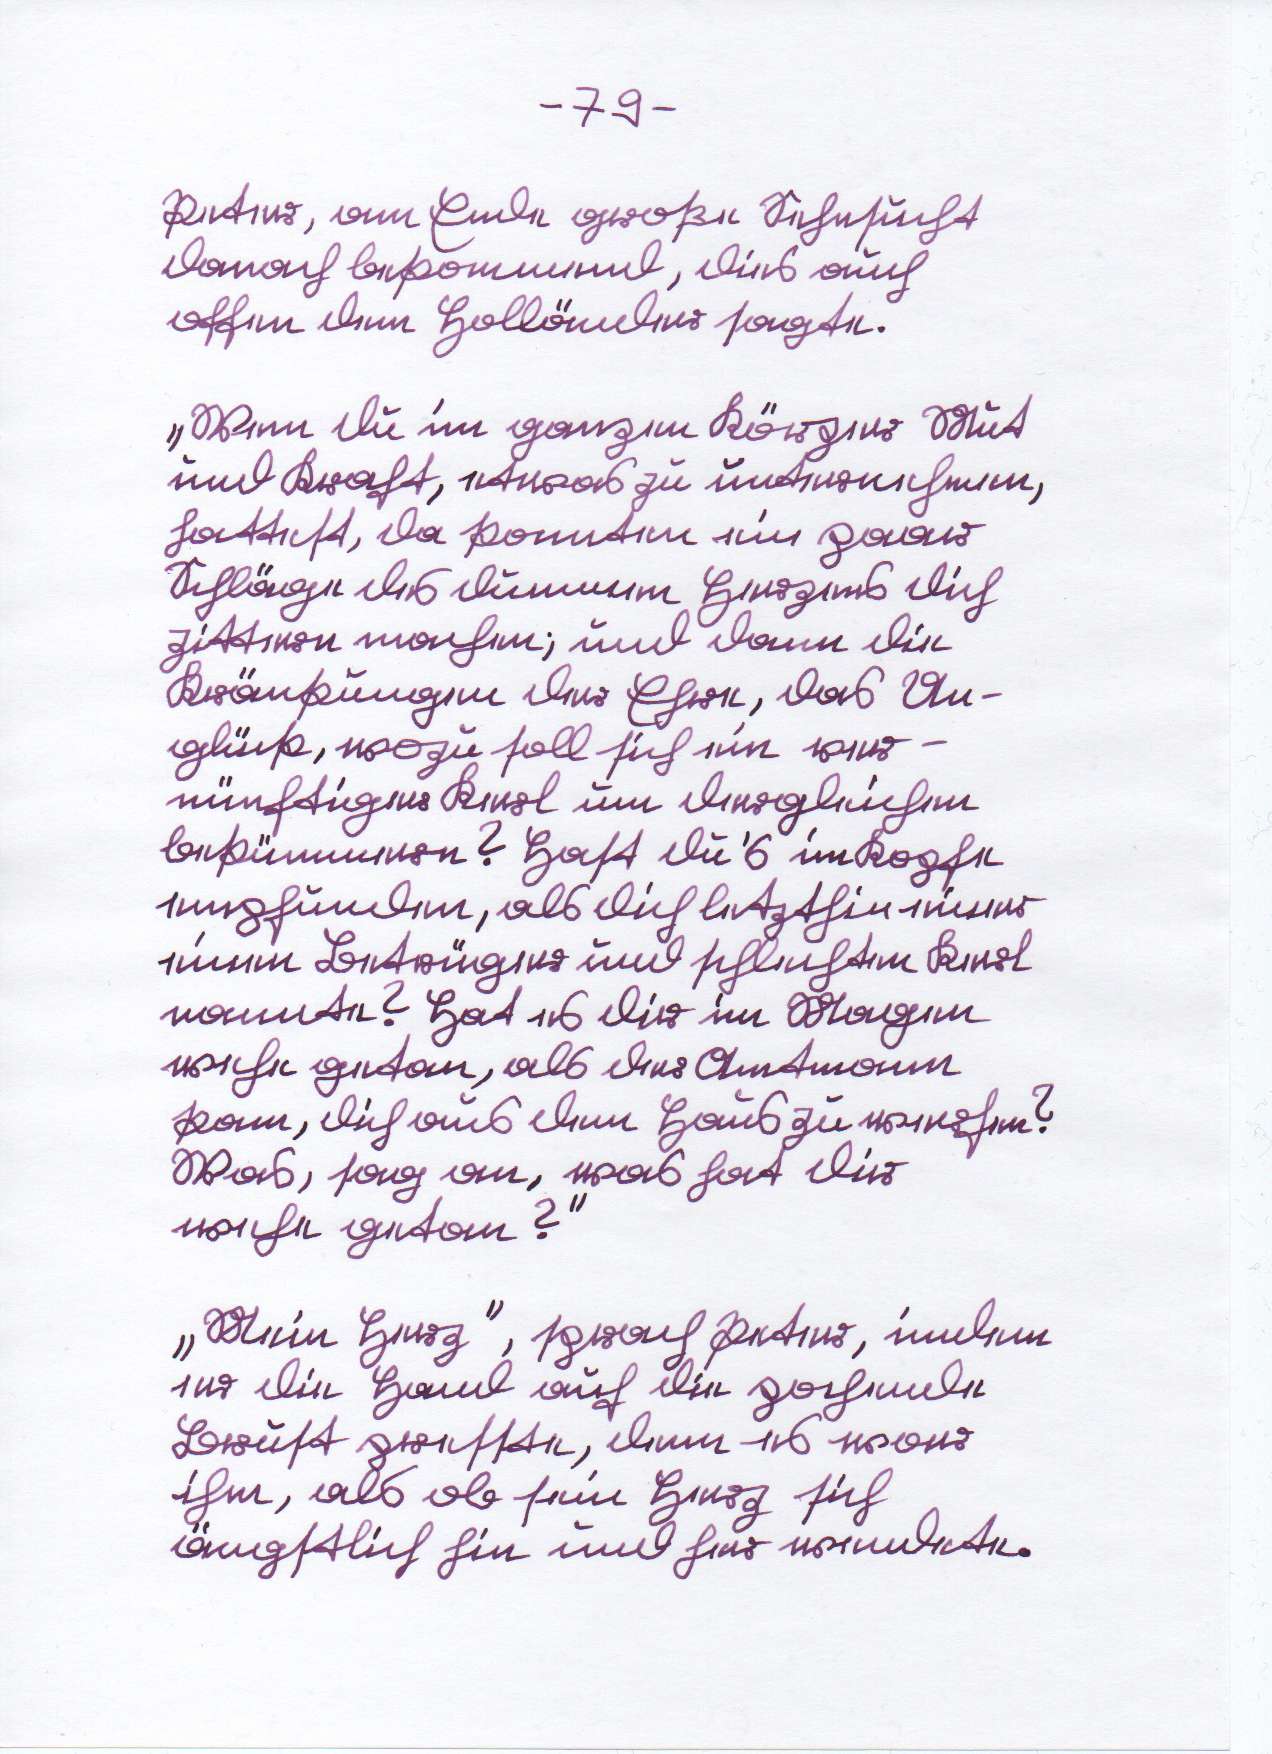 -79-
Peter, am Ende große Sehnsucht
danach bekommend, dies auch
offen dem Holländer sagte.
„Wenn du im ganzen Körper Mut
und Kraft, etwas zu unternehmen,
hattest, da konnten ein paar
Schläge des dummen Herzens dich
zittern machen; und dann die
Kränkungen der Ehre, das Un-
glück, wozu soll sich ein ver-
nünftiger Kerl um dergleichen
bekümmern? Hast du's im Kopfe
empfunden, als dich letzthin einer
einen Betrüger und schlechten Kerl
nannte? Hat es dir im Magen
wehe getan, als der Amtmann
kam, dich aus dem Haus zu werfen?
Was, sag an, was hat dir
wehe getan?"
„Mein Herz", sprach Peter, indem
er die Hand auf die pochende
Brust presste, denn es war
ihm, als ob sein Herz sich
ängstlich hin und her wendete.